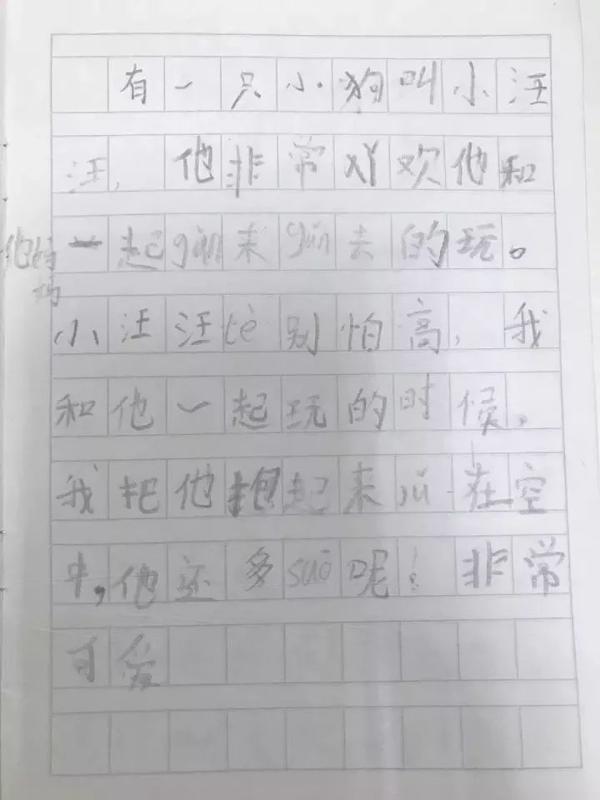 有一只小狗叫小汪
汪，他非常欢他和
他妈妈一起gǔn来gǔn去的玩。
小汪汪tè别怕高，我
和他一起玩的时候，
我把他抱起来在空
中，他还多suō呢！非常
可爱